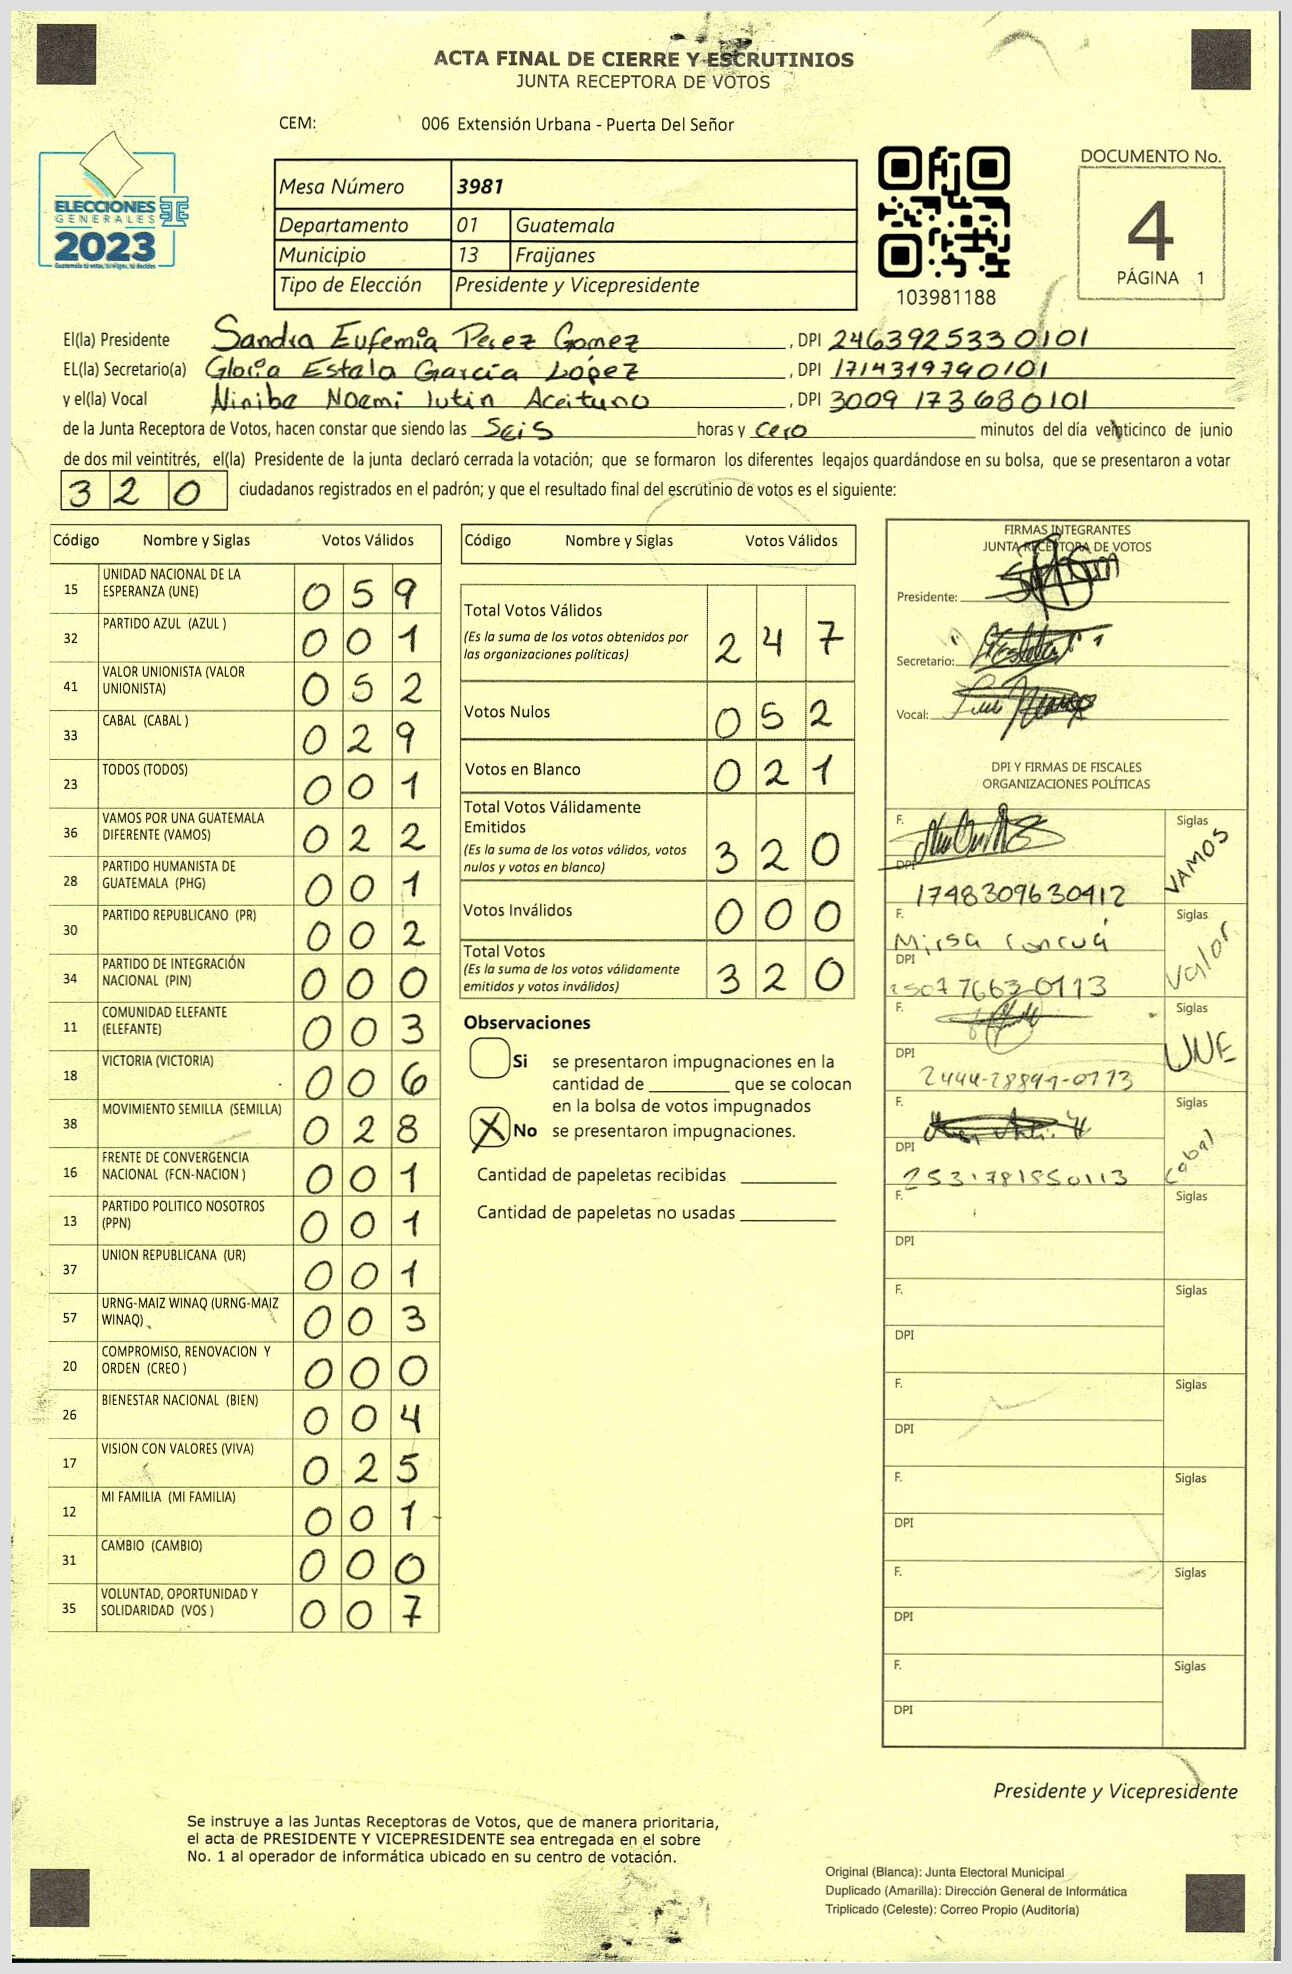 ACTA FINAL DE CIERRE Y ESCRUTINIOS
JUNTA RECEPTORA DE VOTOS
CEM: 006 Extensión Urbana - Puerta Del Señor
ELECCIONES
GENERALES
2023
Mesa Número 3981
Departamento 01 Guatemala
Municipio 13 Fraijanes
Tipo de Elección Presidente y Vicepresidente
103981188
DOCUMENTO No.
4
PÁGINA 1
El(la) Presidente Sandra Eufemia Perez Gomez, DPI 2463925330101
EL(la) Secretario(a) Gloria Estela García López, DPI 1714319790101
y el(la) Vocal Noemi Aceituno, DPI 3009 173680101
de la Junta Receptora de Votos, hacen constar que siendo las Seis horas y cero minutos del día veinticinco de junio
de dos mil veintitrés, el(la) Presidente de la junta declaró cerrada la votación; que se formaron los diferentes legajos guardándose en su bolsa, que se presentaron a votar
320 ciudadanos registrados en el padrón; y que el resultado final del escrutinio de votos es el siguiente:
Código Nombre y Siglas Votos Válidos
15 UNIDAD NACIONAL DE LA ESPERANZA (UNE) 059
32 PARTIDO AZUL (AZUL ) 001
41 VALOR UNIONISTA (VALOR UNIONISTA) 052
33 CABAL (CABAL ) 029
23 TODOS (TODOS) 001
36 VAMOS POR UNA GUATEMALA DIFERENTE (VAMOS) 022
28 PARTIDO HUMANISTA DE GUATEMALA (PHG) 001
30 PARTIDO REPUBLICANO (PR) 002
34 PARTIDO DE INTEGRACIÓN NACIONAL (PIN) 000
11 COMUNIDAD ELEFANTE (ELEFANTE) 003
18 VICTORIA (VICTORIA) 006
38 MOVIMIENTO SEMILLA (SEMILLA) 028
16 FRENTE DE CONVERGENCIA NACIONAL (FCN-NACION ) 001
13 PARTIDO POLITICO NOSOTROS (PPN) 001
37 UNION REPUBLICANA (UR) 001
57 URNG-MAIZ WINAQ (URNG-MAIZ WINAQ) 003
20 COMPROMISO, RENOVACION Y ORDEN (CREO ) 000
26 BIENESTAR NACIONAL (BIEN) 004
17 VISION CON VALORES (VIVA) 025
12 MI FAMILIA (MI FAMILIA) 001
31 CAMBIO (CAMBIO) 000
35 VOLUNTAD, OPORTUNIDAD Y SOLIDARIDAD (VOS ) 007
Código Nombre y Siglas Votos Válidos
Total Votos Válidos 247
(Es la suma de los votos obtenidos por
las organizaciones políticas)
Votos Nulos 052
Votos en Blanco 021
Total Votos Válidamente
Emitidos 320
(Es la suma de los votos válidos, votos
nulos y votos en blanco)
Votos Inválidos 000
Total Votos 320
(Es la suma de los votos válidamente
emitidos y votos inválidos)
Observaciones
Si se presentaron impugnaciones en la
cantidad de ________ que se colocan
en la bolsa de votos impugnados
X No se presentaron impugnaciones.
Cantidad de papeletas recibidas
Cantidad de papeletas no usadas
FIRMAS INTEGRANTES
JUNTA RECEPTORA DE VOTOS
Presidente:
Secretario:
Vocal:
DPI Y FIRMAS DE FISCALES
ORGANIZACIONES POLÍTICAS
F. Siglas VAMOS
DPI 1748309630412
F. Mirsa Siglas Valor
DPI 7663 0113
F. Siglas UNE
DPI
F. Siglas Cabal
DPI
F. Siglas
DPI
F. Siglas
DPI
F. Siglas
DPI
F. Siglas
DPI
F. Siglas
DPI
F. Siglas
DPI
Presidente y Vicepresidente
Se instruye a las Juntas Receptoras de Votos, que de manera prioritaria,
el acta de PRESIDENTE Y VICEPRESIDENTE sea entregada en el sobre
No. 1 al operador de informática ubicado en su centro de votación.
Original (Blanca): Junta Electoral Municipal
Duplicado (Amarilla): Dirección General de Informática
Triplicado (Celeste): Correo Propio (Auditoría)